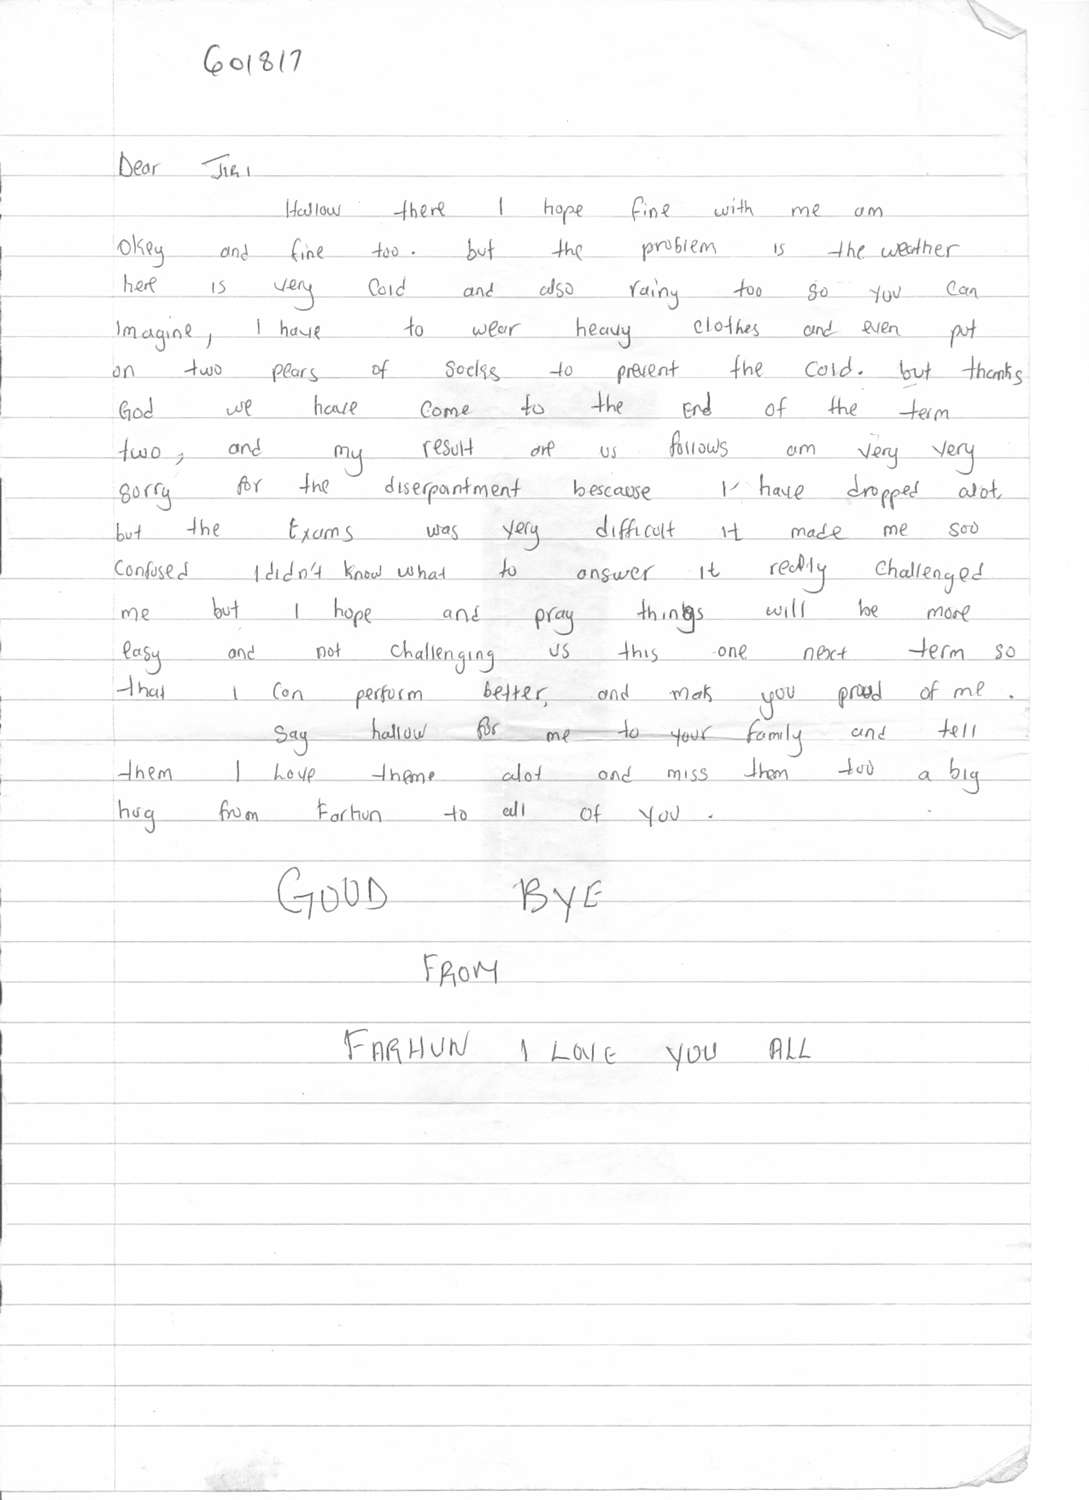 601817
Dear JIRI
Hallow there I hope fine with me am
okey and fine too. but the problem is the weather
here is very cold and also rainy too so you can
imagine, I have to wear heavy clothes and even put
on two pears of socks to prevent the cold. but thanks
God we have come to the End of the term
two, and my result are us follows am very very
sorry for the diserpointment bescause I have dropped alot
but the Exams was very difficult it made me soo
confused I didn't know what to answer it really challenged
me but I hope and pray things will be more
easy and not challenging us this one next term so
that I can perform better, and mak you proud of me.
Say hallow for me to your family and tell
them I love theme alot and miss them too a big
hug from Farhun to all of you.
GOOD BYE
FROM
FARHUN I LOVE YOU ALL